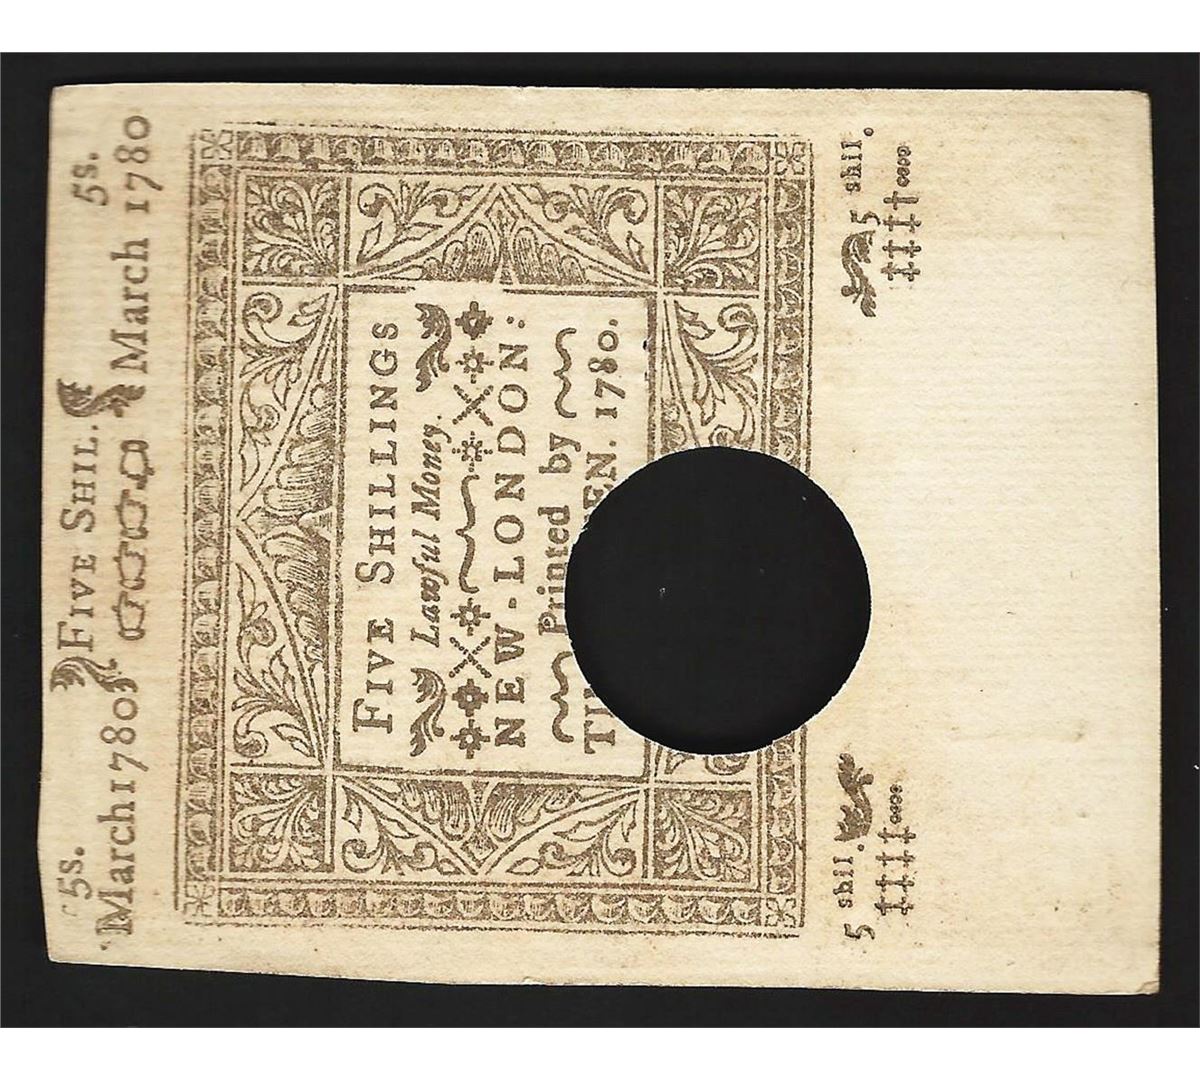 5s. FIVE SHIL. 5s.
March 1780 March 1780
FIVE SHILLINGS
Lawful Money.
NEW-LONDON:
Printed by
TI EN. 1780.
5 shil. 5 shil.